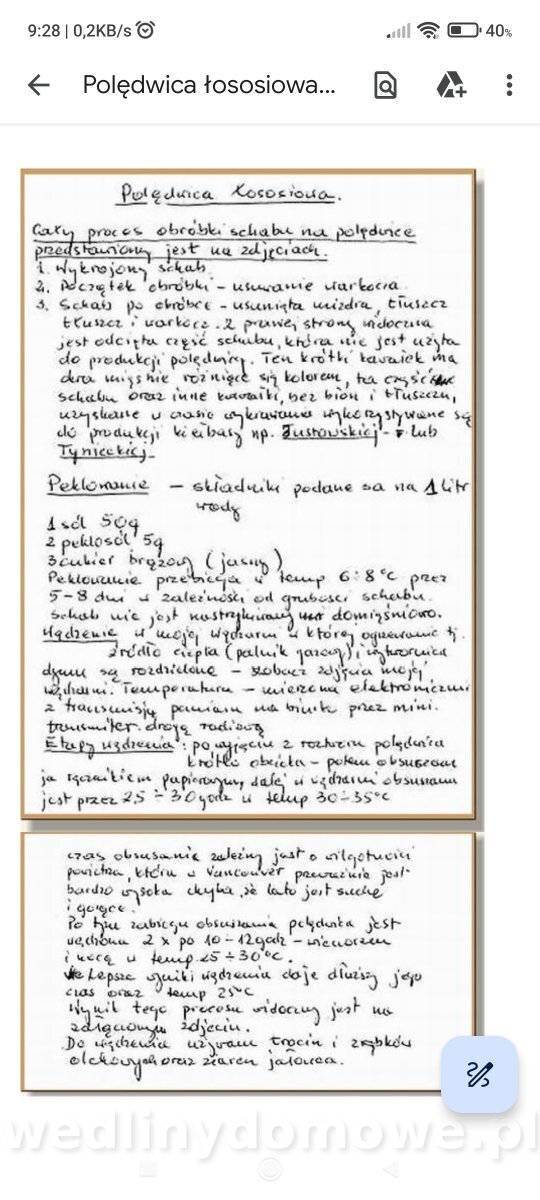 9:28 | 0,2KB/s
40%
Polędwica łososiowa...
Polędwica Łososiowa.
Cały proces obróbki schabu na polędwicę
przedstawiony jest na zdjęciach.
1. Wykrojony schab.
2. Początek obróbki - usuwanie warkocza.
3. Schab po obróbce - usunięta mizdra, tłuszcz
tłuszcz i warkocz. Z prawej strony widoczna
jest odcięta część schabu, która nie jest użyta
do produkcji polędwicy. Ten krótki kawałek ma
dwa mięśnie różniące się kolorem, ta część
schabu oraz inne kawałki, bez błon i tłuszczu,
uzyskane w czasie wykrawania wykorzystywane są
do produkcji kiełbasy np. Justowskiej - lub
Tynieckiej.
Peklowanie - składniki podane sa na 1 litr
wody
1 sól 50g
2 peklosól 5g
3 cukier brązowy (jasny)
Peklowanie przebiega w temp 6÷8°C przez
5-8 dni w zależności od grubości schabu.
Schab nie jest nastrzykiwany domięśniowo.
Wędzenie w mojej wędzarni w której ogrzewanie tj.
źródło ciepła (palnik gazowy) i wytwornica
dymu są rozdzielone - zobacz zdjęcia mojej
wędzarni. Temperatura - mierzona elektronicznie
z transmisją pomiaru na biurko przez mini.
transmiter drogą radiową
Etapy wędzenia: po wyjęciu z roztworu polędwica
krótko obcieka - potem obsuszam
ją ręcznikiem papierowym, dalej w wędzarni obsuszana
jest przez 25÷30 godz w temp 30÷35°C
czas obsuszania zależny jest o wilgotności
powietrza, która w Vancouver przeważnie jest
bardzo wysoka chyba, że lato jest suche
i gorące.
Po tym zabiegu obsuszania polędwica jest
wędzona 2 x po 10-12godz - wieczorem
i nocą w temp. 25÷30°C.
Lepsze wyniki wędzenia daje dłuższy jego
czas oraz temp 25°C
Wynik tego procesu widoczny jest na
załączonym zdjęciu.
Do wędzenia używam trocin i zrębków
olchowych oraz ziaren jałowca.
wedlinydomowe.pl